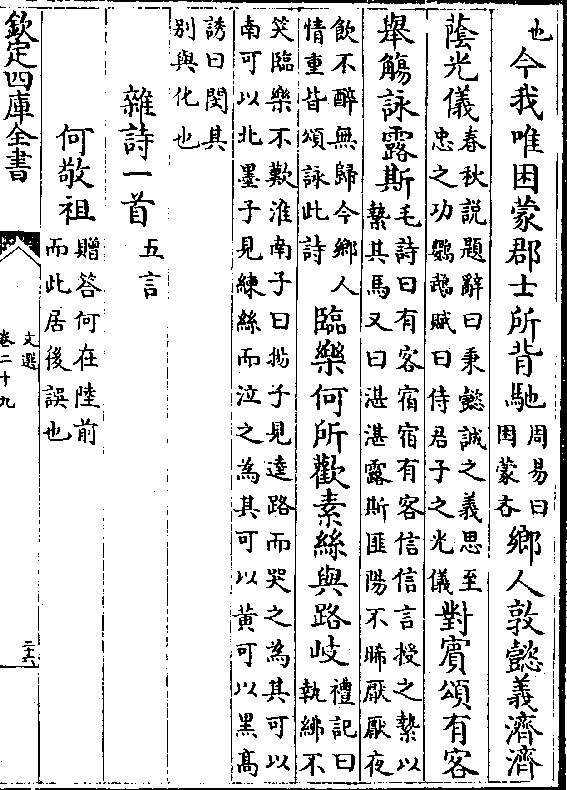 也今我唯困蒙郡士所背馳周易曰困蒙吝鄉人敦懿義濟濟
蔭光儀春秋說題辭曰秉懿誠之義思至忠之功鸚鵡賦曰侍君子之光儀對賓頌有客
舉觴詠露斯毛詩曰有客宿宿有客信信言授之縶以縶其馬又曰湛湛露斯匪陽不晞厭厭夜
飲不醉無歸今鄉人情重昔頌詠此詩臨樂何所歡素絲與路岐禮記曰執紼不
笑臨樂不歎淮南子曰揚子見達路而哭之為其可以南可以北墨子見練絲而泣之為其可以黃可以黑高
誘曰閔其別與化也
雜詩一首五言
何敬祖贈答何在陸前而此居後誤也
欽定四庫全書
文選
卷二十九
二十六